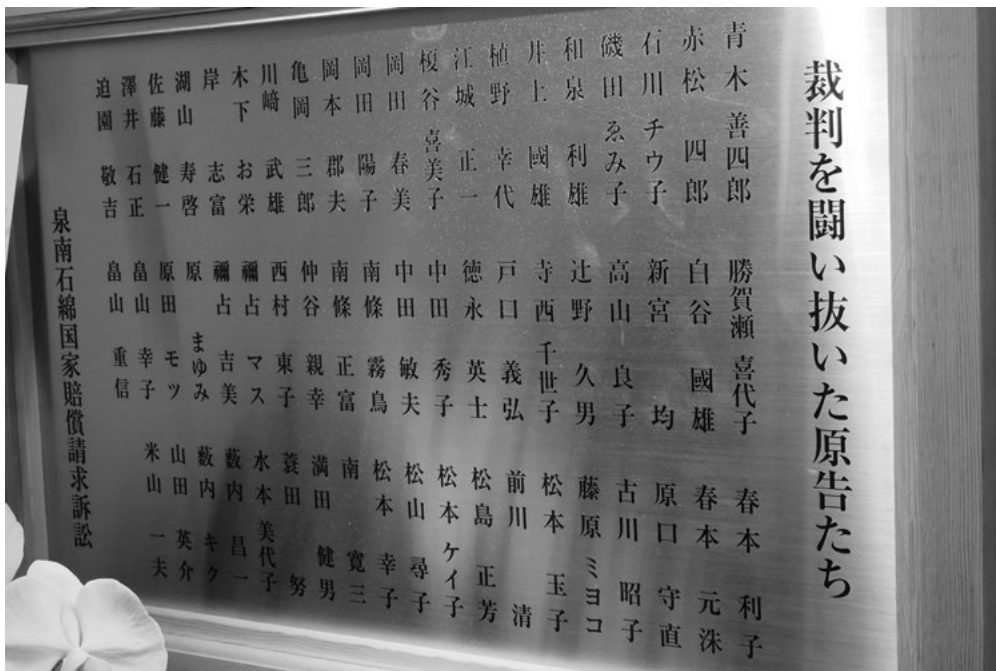 裁判を闘い抜いた原告たち
青木 善四郎
赤松 四郎
石川 チウ子
磯田 ゑみ子
和泉 利雄
井上 國雄
植野 幸代
江城 正一
榎谷 喜美子
岡田 春美
岡田 陽子
岡本 郡夫
亀岡 三郎
川﨑 武雄
木下 お栄
岸 志富
湖山 寿啓
佐藤 健一
澤井 石正
迫園 敬吉
勝賀瀬 喜代子
白谷 國雄
新宮 均
高山 良子
辻野 久男
寺西 千世子
戸口 義弘
徳永 英士
中田 秀子
中田 敏夫
南條 霧鳥
南條 正富
仲谷 親幸
西村 東子
禰占 マス
禰占 吉美
原 まゆみ
原田 モツ
畠山 幸子
畠山 重信
春本 利子
春本 元洙
原口 守直
古川 昭子
藤原 ミヨコ
松本 玉子
前川 清
松島 正芳
松本 ケイ子
松山 尋子
松本 幸子
南 寛三
満田 健男
蓑田 努
水本 美代子
藪内 昌一
藪内 キク
山田 英介
米山 一夫
泉南石綿国家賠償請求訴訟